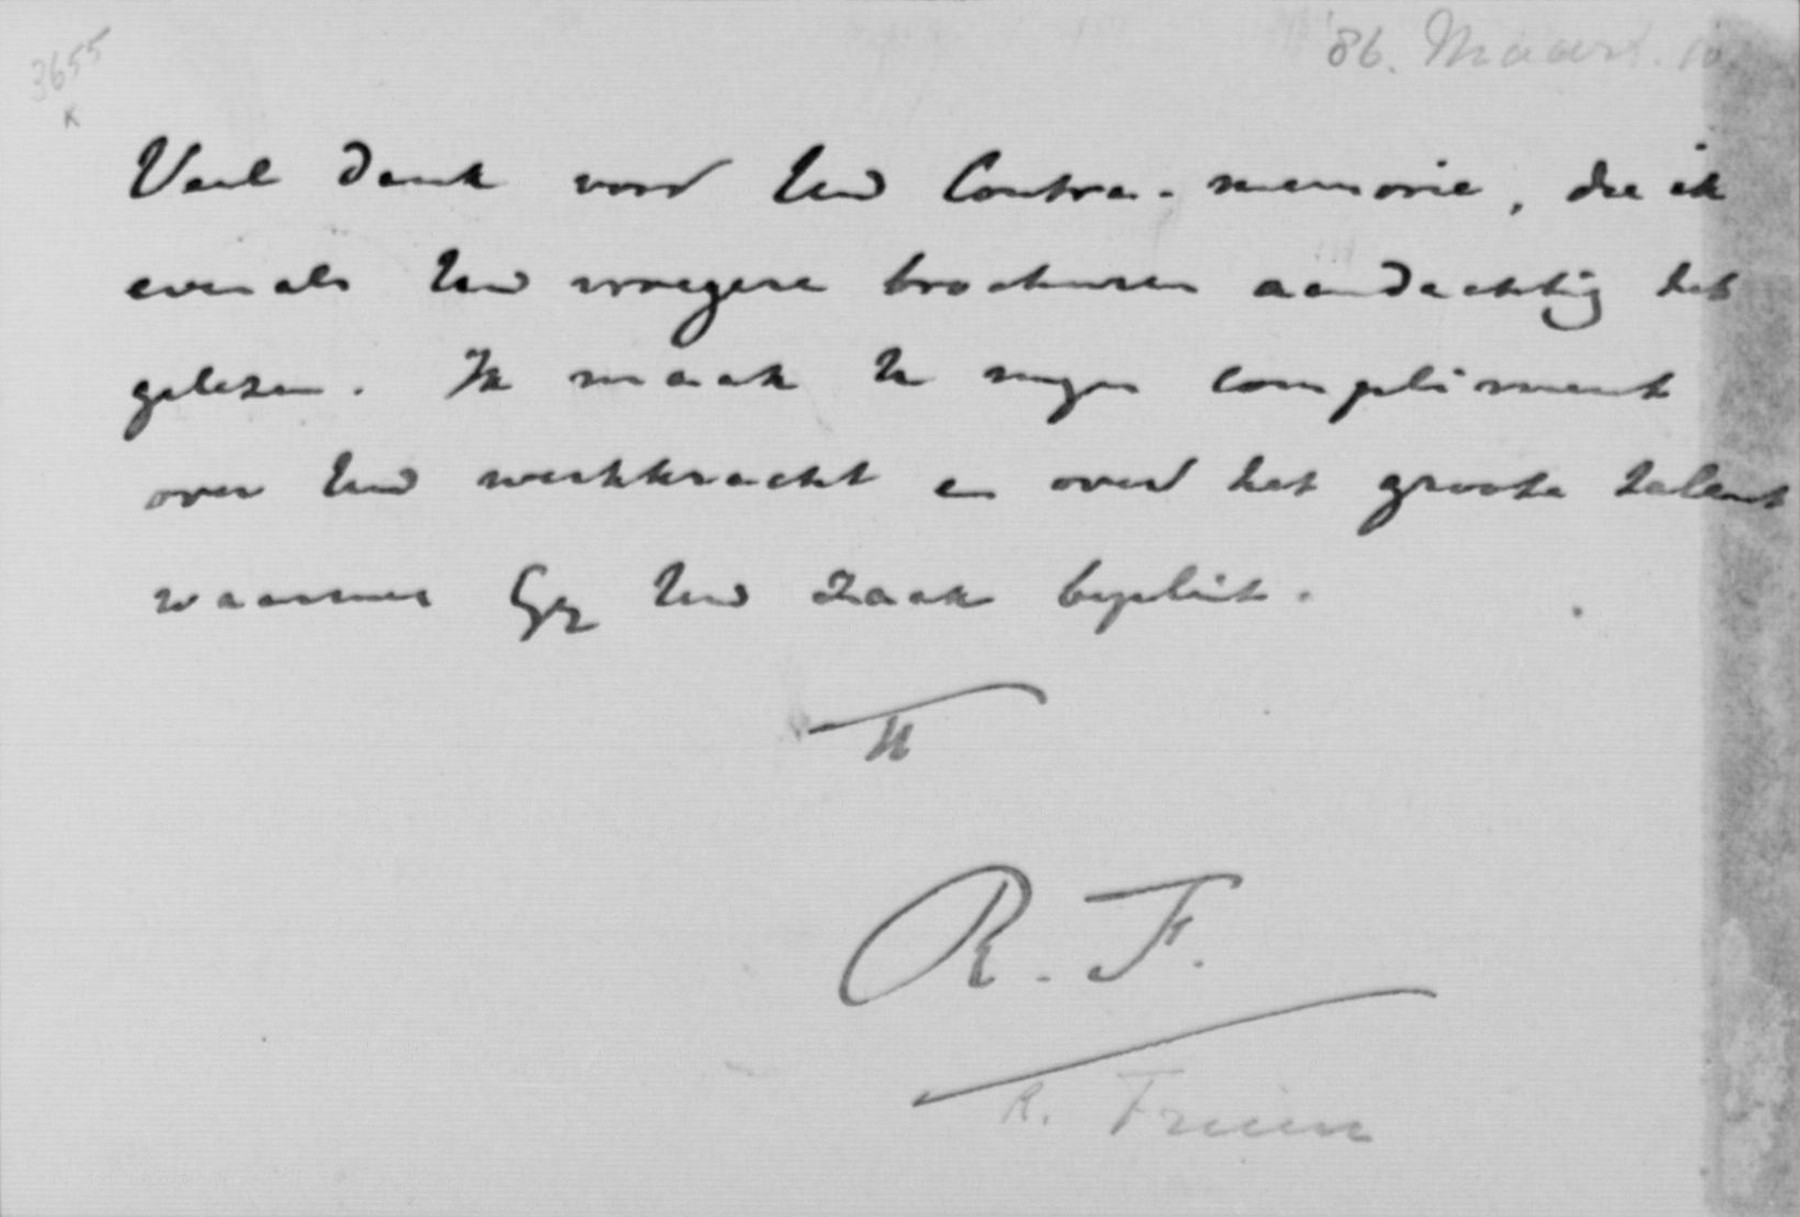 3655
K
'86. Maart. 10.
Veel dank voor Uw Contra-memorie, die ik
evenals Uw vroegere brochuren aandachtig heb
gelezen. Ik maak U mijn compliment
over Uw werkkracht en over het groote talent
waarmee Gij Uw zaak bepleit.
R. F.
R. Fruin